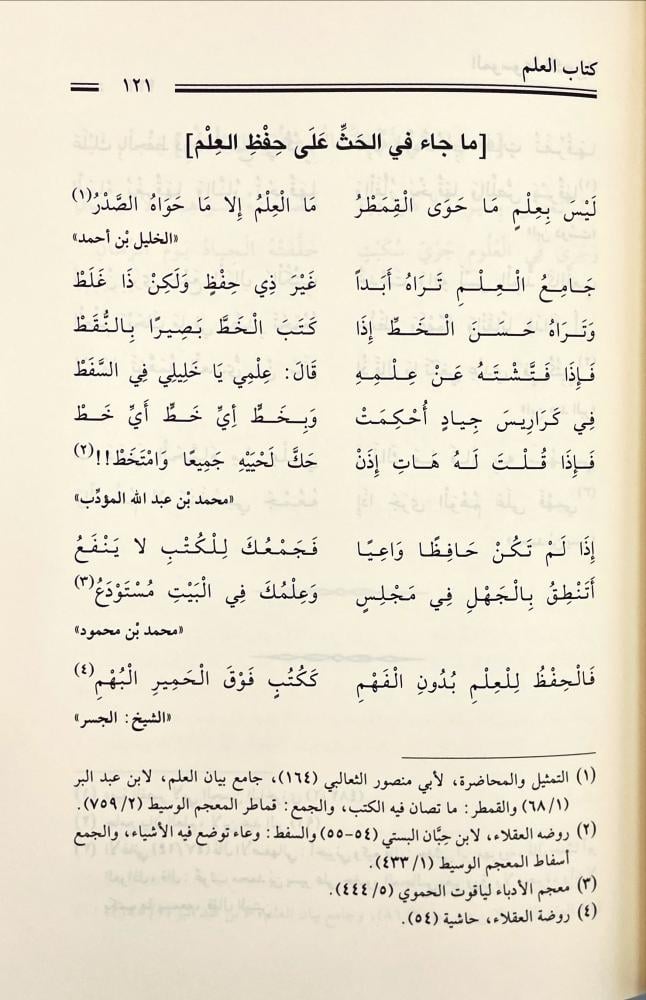 كتاب العلم
١٢١
[ما جاء في الحَثِّ عَلَى حِفْظِ العِلْمِ]
لَيْسَ بِعِلْمٍ مَا حَوَى الْقِمَطْرُ مَا الْعِلْمُ إِلا مَا حَوَاهُ الصَّدْرُ(١)
«الخليل بْن أحمد»
جَامِعُ الْعِلْمِ تَرَاهُ أَبَداً غَيْرَ ذِي حِفْظٍ وَلَكِنْ ذَا غَلَطْ
وَتَرَاهُ حَسَنَ الْخَطِّ إِذَا كَتَبَ الْخَطَّ بَصِيرًا بِالنُّقَطْ
فَإِذَا فَتَّشْتَهُ عَنْ عِلْمِهِ قَالَ: عِلْمِي يَا خَلِيلِي فِي السَّفَطْ
فِي كَرَارِيسَ جِيادٍ أُحْكِمَتْ وَبِخَطٍّ أَيِّ خَطٍّ أَيِّ خَطْ
فَإِذَا قُلْتَ لَهُ هَاتِ إِذَنْ حَكَّ لَحْيَيْهِ جَمِيعًا وَامْتَخَطْ!!(٢)
«محمد بْن عبد الله المؤدِّب»
إِذَا لَمْ تَكُنْ حَافِظًا وَاعِيًا فَجَمْعُكَ لِلْكُتْبِ لا يَنْفَعُ
أَتَنْطِقُ بِالْجَهْلِ فِي مَجْلِسٍ وَعِلْمُكَ فِي الْبَيْتِ مُسْتَوْدَعُ(٣)
«محمد بْن محمود»
فَالْحِفْظُ لِلْعِلْمِ بُدُونِ الْفَهْمِ كَكُتُبٍ فَوْقَ الْحَمِيرِ الْبُهْمِ(٤)
«الشيخ: الجسر»
(١) التمثيل والمحاضرة، لأبي منصور الثعالبي (١٦٤)، جامع بيان العلم، لابن عبد البر
(٦٨/١) والقمطر: ما تصان فيه الكتب، والجمع: قماطر المعجم الوسيط (٧٥٩/٢).
(٢) روضه العقلاء، لابن حِبَّان البستي (٥٤-٥٥) والسفط: وعاء توضع فيه الأشياء، والجمع
أسفاط المعجم الوسيط (٤٣٣/١).
(٣) معجم الأدباء لياقوت الحموي (٤٤٤/٥).
(٤) روضة العقلاء، حاشية (٥٤).